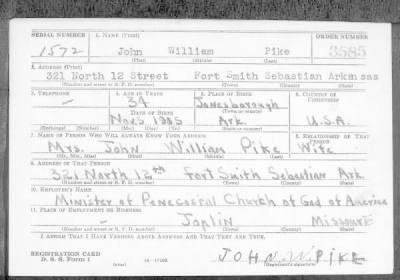 SERIAL NUMBER 1. NAME (Print) ORDER NUMBER
1572 John William Pike 3585
(First) (Middle) (Last)
2. ADDRESS (Print)
321 North 12 Street Fort Smith Sebastian Arkansas
(Number and street or R. F. D. number) (Town) (County) (State)
3. TELEPHONE 4. AGE IN YEARS 5. PLACE OF BIRTH 6. COUNTRY OF CITIZENSHIP
- 34 Jonesborough
DATE OF BIRTH (Town or county)
Nov 25 1905 Ark. U.S.A.
(Exchange) (Number) (Mo.) (Day) (Yr.) (State or country)
7. NAME OF PERSON WHO WILL ALWAYS KNOW YOUR ADDRESS 8. RELATIONSHIP OF THAT PERSON
Mrs. John William Pike Wife
(Mr., Mrs., Miss) (First) (Middle) (Last)
9. ADDRESS OF THAT PERSON
321 North 12th Fort Smith Sebastian Ark
(Number and street or R. F. D. number) (Town) (County) (State)
10. EMPLOYER'S NAME
Minister of Penecostal Church of God of America
11. PLACE OF EMPLOYMENT OR BUSINESS
- Joplin Missouri
(Number and street or R. F. D. number) (Town) (County) (State)
I AFFIRM THAT I HAVE VERIFIED ABOVE ANSWERS AND THAT THEY ARE TRUE.
REGISTRATION CARD
D. S. S. Form 1 JOHN W PIKE
(Registrant's signature)